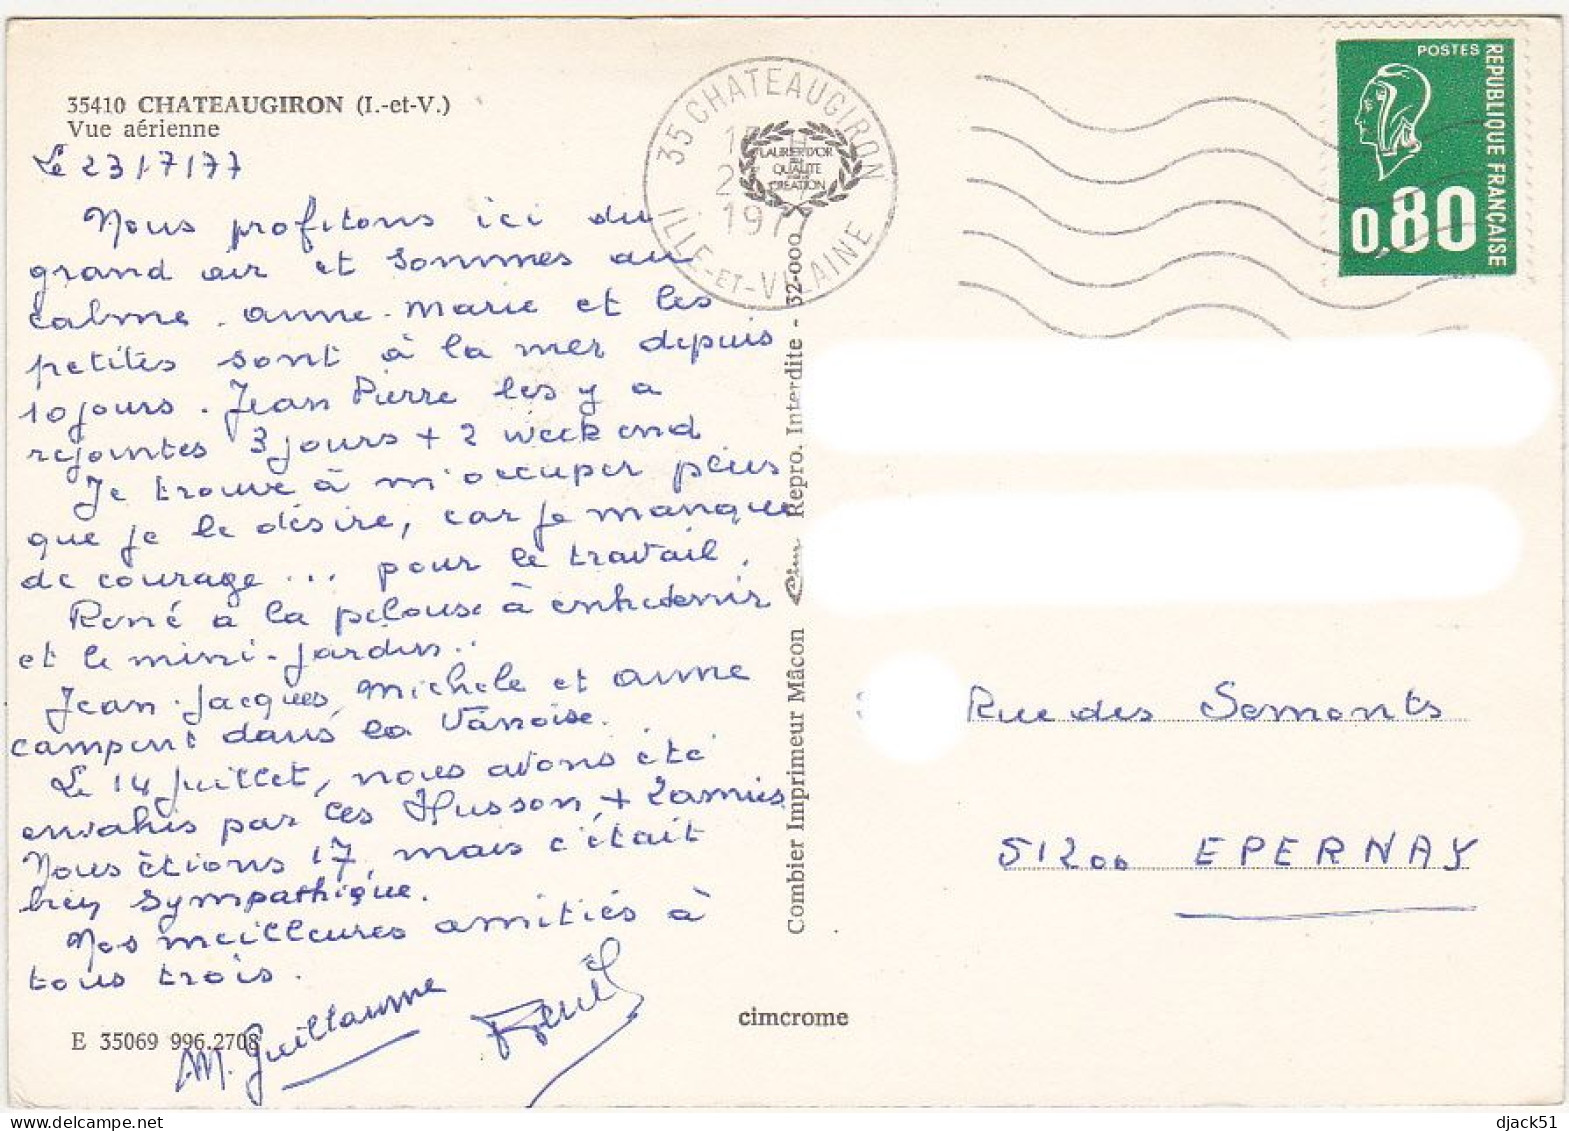 35410 CHATEAUGIRON (I.-et-V.)
Vue aérienne
Le 23/7/77
Nous profitons ici du
grand air et sommes au
calme. anne-Marie et les
petites sont à la mer depuis
10 jours. Jean Pierre les y a
rejointes 3 jours + 2 week end
Je trouve à m'occuper plus
que je le désire, car je manque
de courage... pour le travail.
René a la pelouse à entretenir
et le mini-jardin..
Jean-Jacques, Michèle et anne
campent dans la Vanoise.
Le 14 juillet, nous avons été
envahis par les Husson, + 2 amies
Nous étions 17, mais c'était
bien sympathique.
Nos meilleures amitiés à
tous trois.
AM. Guillaume
René
E 35069 996.2708
cimcrome
Combier Imprimeur Mâcon Cim Repro. Interdite - 32-000
35 CHATEAUGIRON
1977
ILLE-ET-VILAINE
LAURIER D'OR
DE LA
QUALITE
CREATION
POSTES
REPUBLIQUE FRANÇAISE
0,80
Rue des Semonts
51200 EPERNAY
delcampe.net
djack51